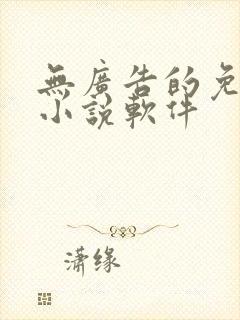 無廣告的免
小說軟件
潇缘